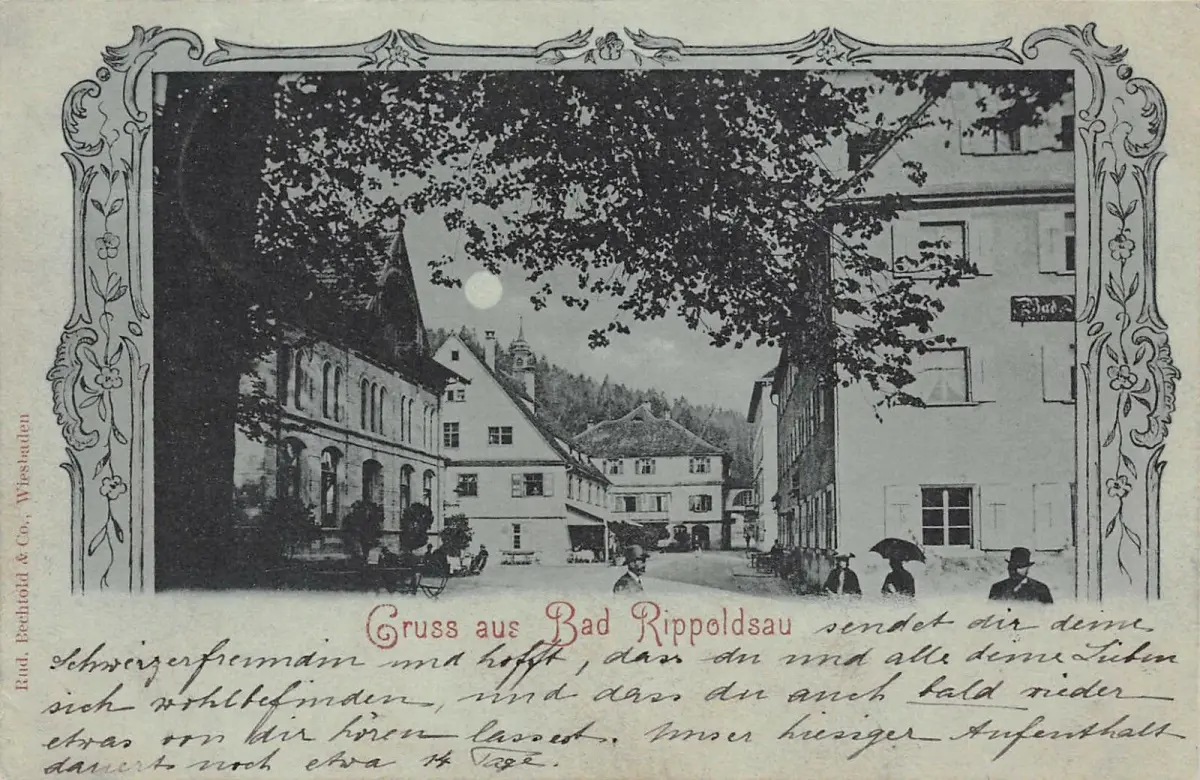 Gruss aus Bad Rippoldsau sendet dir deine
Schweizerfreundin und hofft, dass du und alle deine Lieben
sich wohlbefinden, und dass du auch bald wieder
etwas von dir hören lassest. Unser hiesiger Aufenthalt
dauert noch etwa 14 Tage.
Rud. Bechtold & Co., Wiesbaden